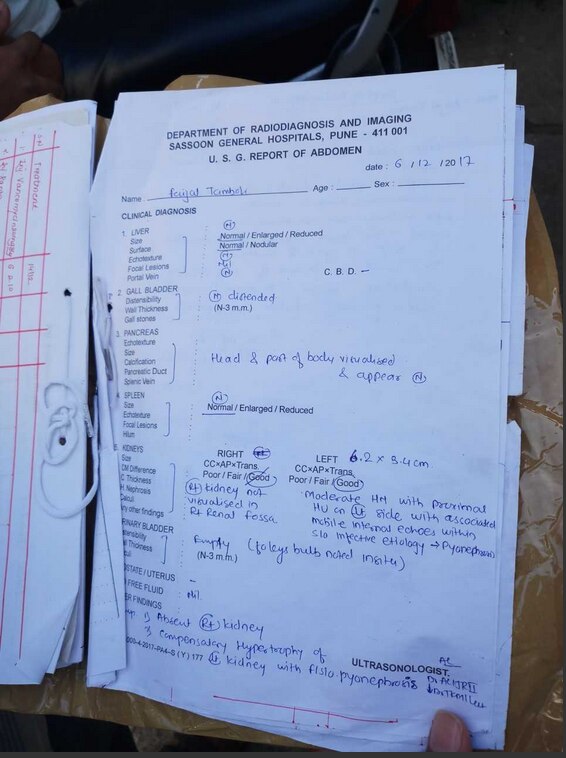 DEPARTMENT OF RADIODIAGNOSIS AND IMAGING
SASSOON GENERAL HOSPITALS, PUNE - 411 001
U. S. G. REPORT OF ABDOMEN
date : 6 / 12 / 2017
Name : Age : Sex :
CLINICAL DIAGNOSIS
1. LIVER (N)
Size : Normal / Enlarged / Reduced
Surface : Normal / Nodular
Echotexture : (N)
Focal Lesions : Nil
Portal Vein : (N) C. B. D. -
2. GALL BLADDER
Distensibility : (N) distended
Wall Thickness (N-3 m.m.)
Gall stones
3. PANCREAS
Echotexture
Size
Calcification : Head & part of body visualised
Pancreatic Duct & appear (N)
Splenic Vein
4. SPLEEN (N)
Size : Normal / Enlarged / Reduced
Echotexture
Focal Lesions
Hilum
KIDNEYS RIGHT LEFT 6.2 x 3.4 cm
Size CC×AP×Trans. CC×AP×Trans.
CM Difference Poor / Fair / Good Poor / Fair / Good
C Thickness (Rt) kidney not Moderate HN with proximal
H. Nephrosis visualised in HU on (Lt) side with associated
Calculi Rt Renal fossa mobile internal echoes within
ny other findings s/o infective etiology → Pyonephrosis
RINARY BLADDER
tensibility : Empty (foleys bulb noted insitu)
ll Thickness (N-3 m.m.)
STATE / UTERUS : -
FREE FLUID : Nil
ER FINDINGS
1) Absent (Rt) kidney
2) Compensatory Hypertrophy of
000-4-2017-PA4-S (Y) 177 (Lt) kidney with f/s/o pyonephrosis
ULTRASONOLOGIST
Treatment